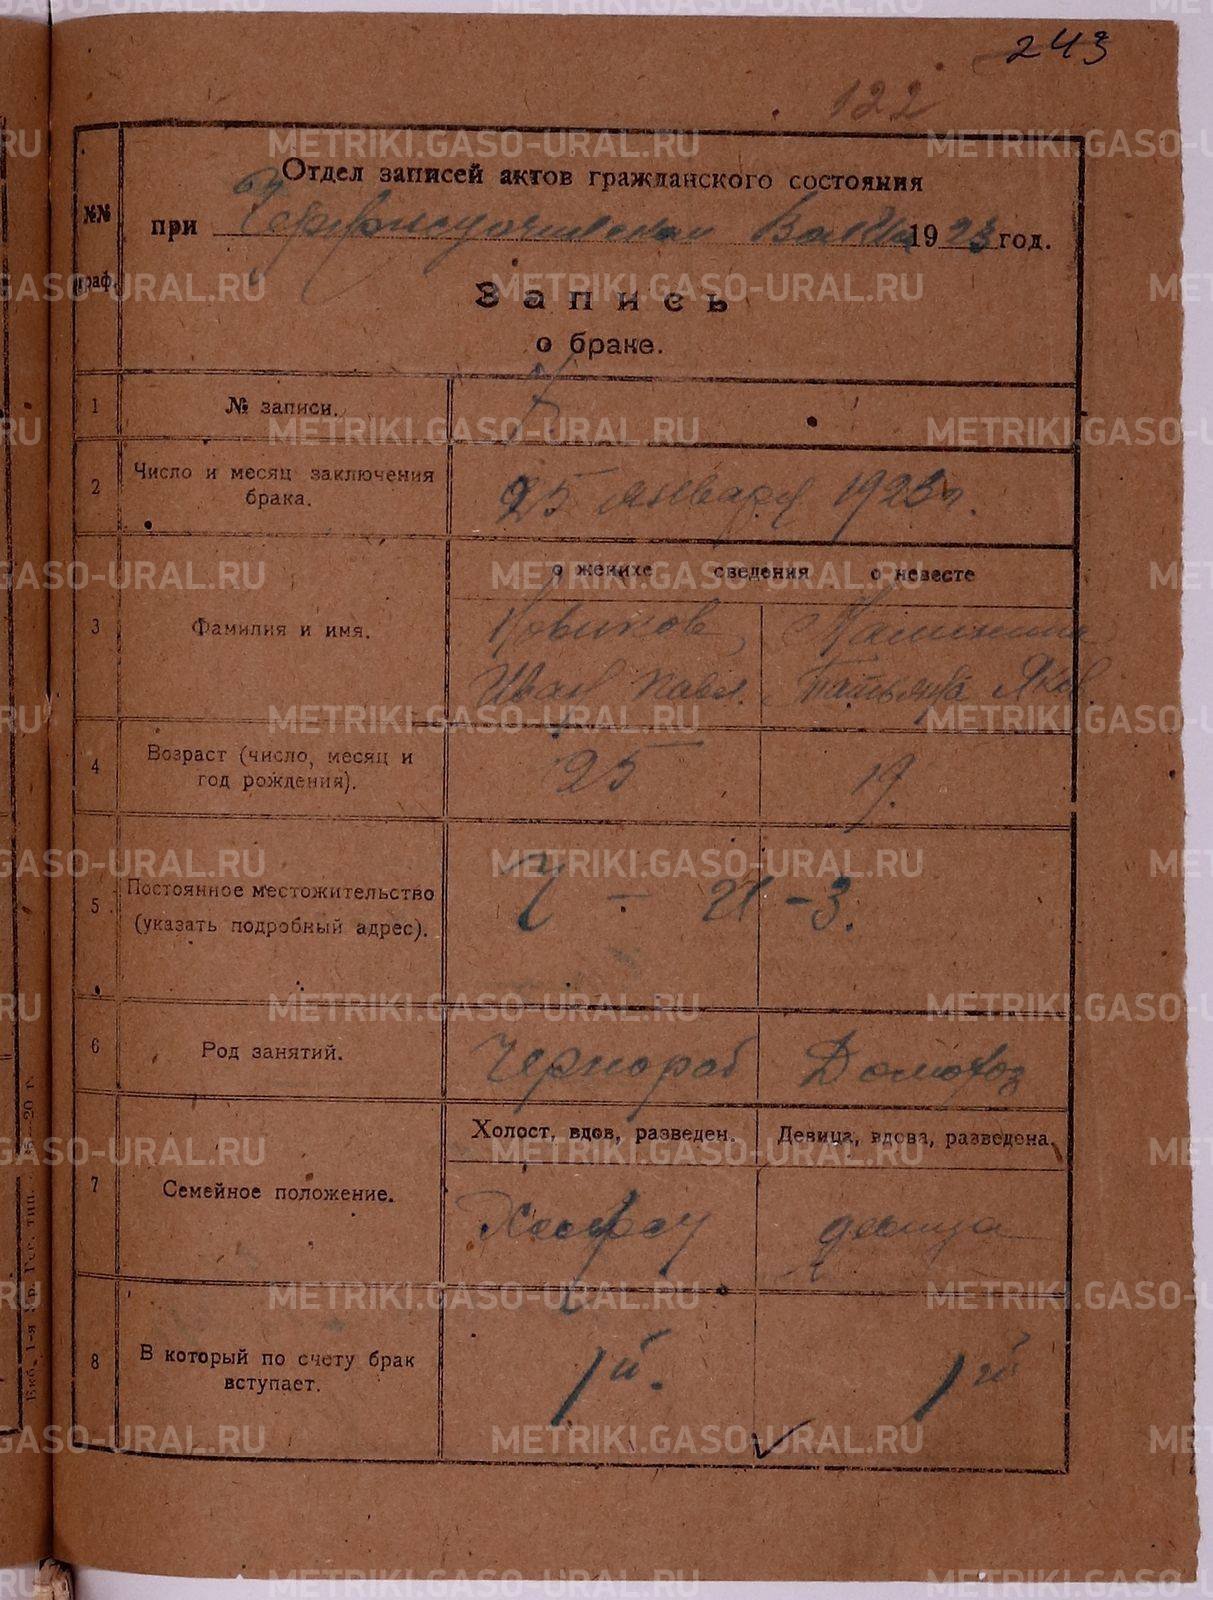 243
122
Отдел записей актов гражданского состояния
№№ граф.
при 1923 год.
Запись
о браке.
1 № записи. 7
2 Число и месяц заключения брака. 25 января 1923 г.
о женихе сведения о невесте
3 Фамилия и имя. Новиков, Калинина
Иван Павл. Татьяна Яков.
4 Возраст (число, месяц и год рождения). 25 19.
5 Постоянное местожительство (указать подробный адрес). Ч - И - З.
6 Род занятий. Чернораб Домохоз
Холост, вдов, разведен. Девица, вдова, разведена.
7 Семейное положение. Холост девица
8 В который по счету брак вступает. 1й. 1й
METRIKI.GASO-URAL.RU